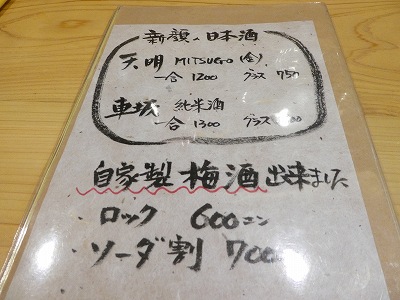 新顔の日本酒
天明 MITSUGO (金)
一合 1200 グラス 750
車坂 純米酒
一合 1300 グラス 00
自家製 梅酒 出来ました
ロック 600エン
ソーダ割 700